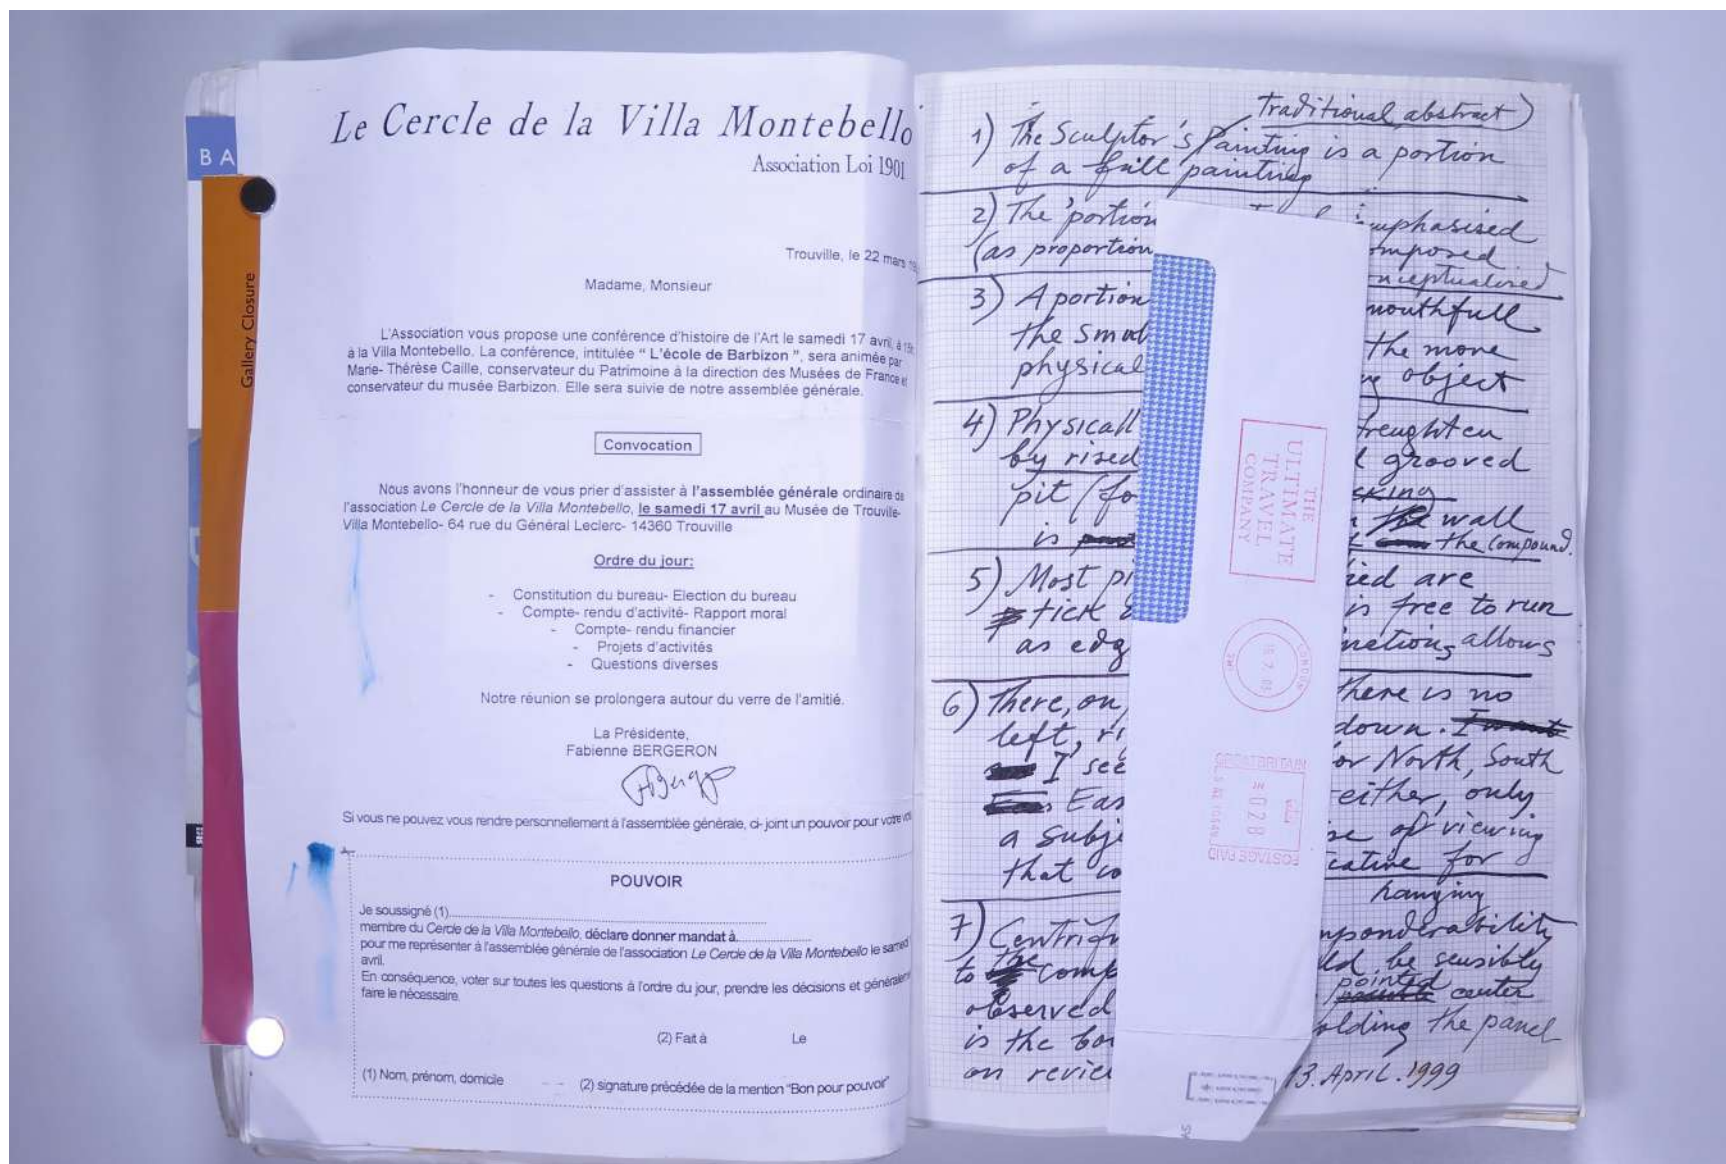 B A
Gallery Closure
Le Cercle de la Villa Montebello
Association Loi 1901
Trouville, le 22 mars
Madame, Monsieur
L'Association vous propose une conférence d'histoire de l'Art le samedi 17 avril, à
à la Villa Montebello. La conférence, intitulée “ L'école de Barbizon ”, sera animée par
Marie- Thérèse Caille, conservateur du Patrimoine à la direction des Musées de France et
conservateur du musée Barbizon. Elle sera suivie de notre assemblée générale.
Convocation
Nous avons l'honneur de vous prier d'assister à l'assemblée générale ordinaire de
l'association Le Cercle de la Villa Montebello, le samedi 17 avril au Musée de Trouville-
Villa Montebello- 64 rue du Général Leclerc- 14360 Trouville
Ordre du jour:
- Constitution du bureau- Election du bureau
- Compte- rendu d'activité- Rapport moral
- Compte- rendu financier
- Projets d'activités
- Questions diverses
Notre réunion se prolongera autour du verre de l'amitié.
La Présidente,
Fabienne BERGERON
Si vous ne pouvez vous rendre personnellement à l'assemblée générale, ci- joint un pouvoir pour votre
POUVOIR
Je soussigné (1)
membre du Cercle de la Villa Montebello, déclare donner mandat à
pour me représenter à l'assemblée générale de l'association Le Cercle de la Villa Montebello le samedi
avril.
En conséquence, voter sur toutes les questions à l'ordre du jour, prendre les décisions et
faire le nécessaire.
(2) Fait à Le
(1) Nom, prénom, domicile (2) signature précédée de la mention "Bon pour pouvoir"
Traditional abstract)
1) The Sculptor's Painting is a portion
of a full painting
2) The 'portion emphasised
(as proportion composed
conceptualised
3) A portion mouthfull
the smal the more
physical object
4) Physicall
by rised grooved
pit (fo
is the wall
the compound.
5) Most pi are
tick is free to run
as edg allows
6) There, on, there is no
left, ri down.
I see or North, South
Eas either, only
a subje of viewing
that co for
hanging
7) Centrifu imponderability
to the comp be sensibly
observed pointed center
is the bo holding the panel
on revie 13. April. 1999
THE
ULTIMATE
TRAVEL
COMPANY
LONDON
GREAT BRITAIN
028
POSTAGE PAID